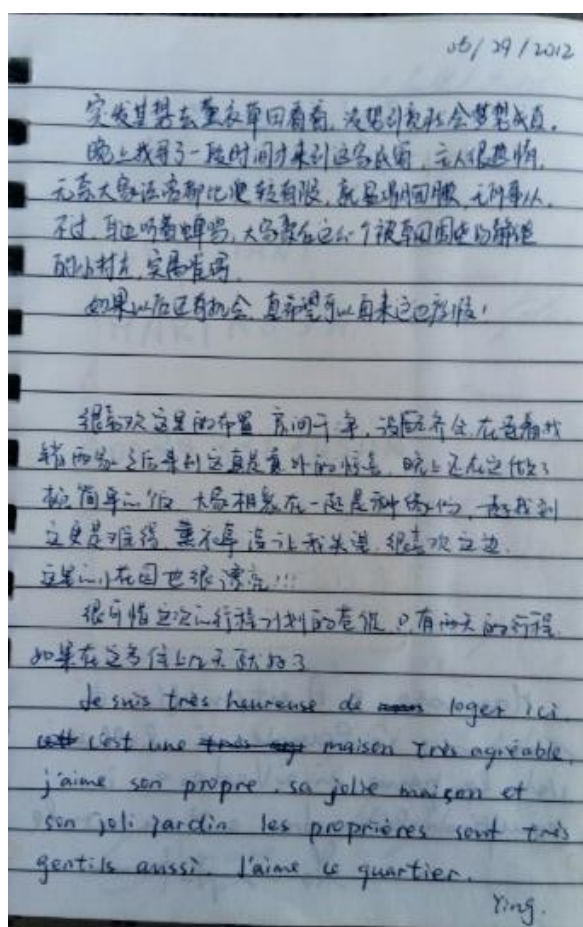 05/29/2012
突发其想去薰衣草田看看,没想到竟然会梦想成真。
晚上找寻了一段时间才来到这家民宿,主人很热情,
无奈大家语言都比较有限,就显得腼腆,无所事从。
不过,耳边听着蝉鸣,大家聚在这么个被草田围绕的
的小村庄,实属难得
如果以后还有机会,真希望可以再来这边度假!
很喜欢这里的布置,房间干净,设配齐全,在连着找
错两家之后来到这真是意外的惊喜,晚上还在这做了
顿简单的饭,大家相聚在一起是种缘份,一起找到
这更是难得,薰衣草没让我失望,很喜欢这边,
这里的小花园也很漂亮!!!
很可惜这次的行程计划的仓促,只有两天的行程
如果在这多住上几天就好了
Je suis très heureuse de loger ici.
c'est une maison très agréable,
j'aime son propre, sa jolie maison et
son joli jardin les proprières sont très
gentils aussi. J'aime le quartier.
Ying.